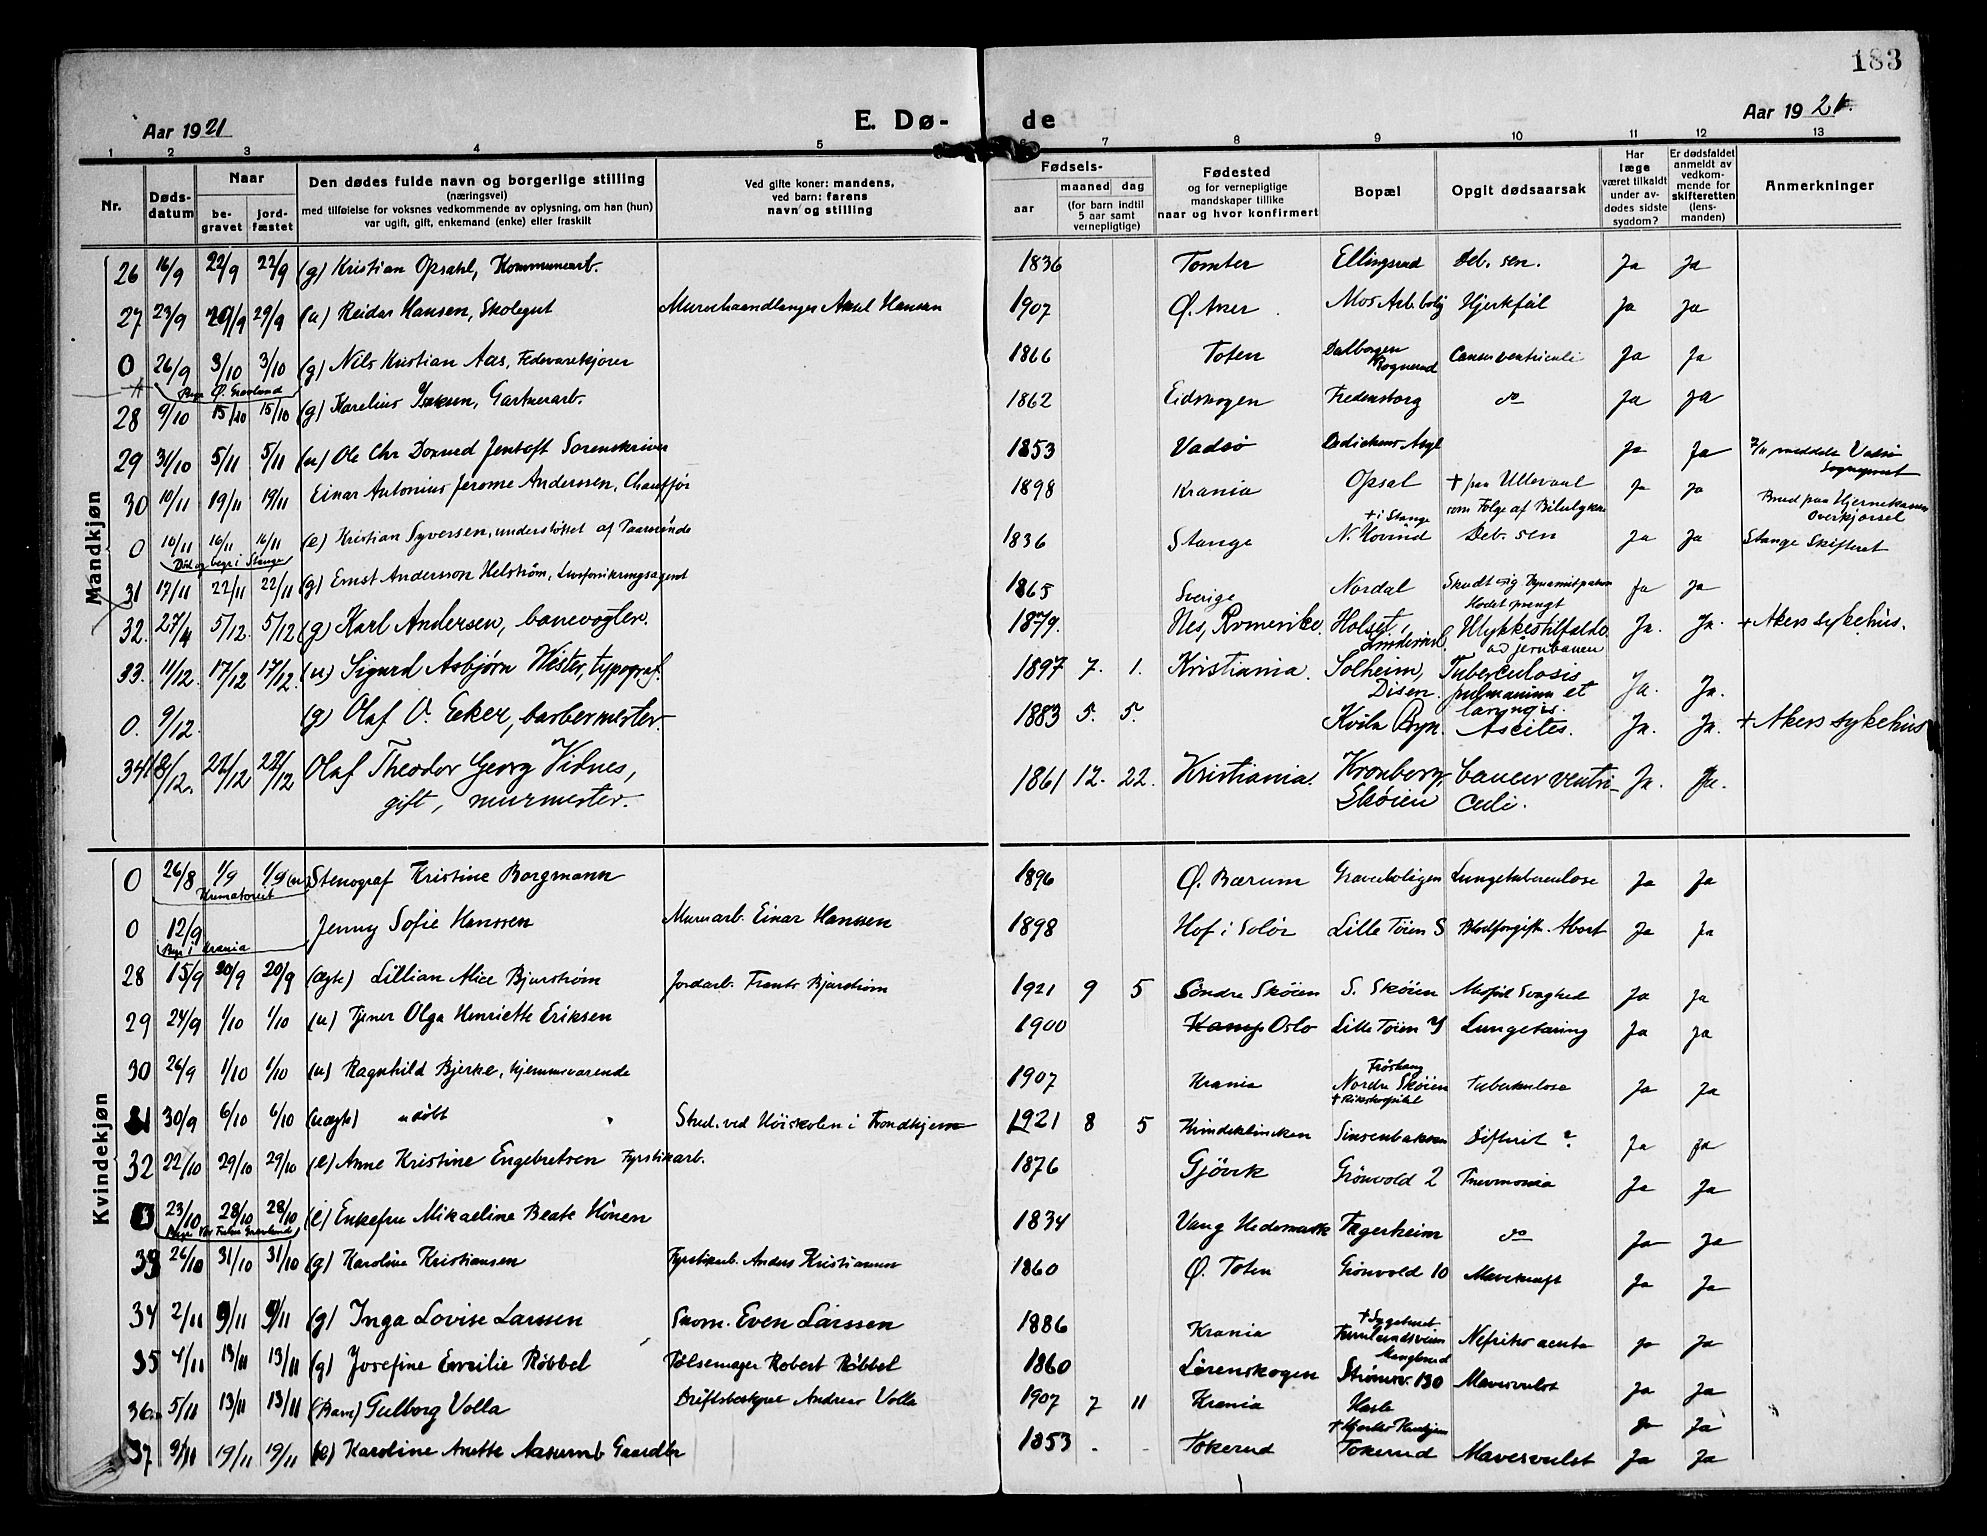 183
Aar 1921 E. Dø- de Aar 1921.
1 2 3 4 5 7 8 9 10 11 12 13
Nr. Døds-datum Naar be-gravet jord-fæstet Den dødes fulde navn og borgerlige stilling (næringsvei) med tilføielse for voksnes vedkommende av oplysning, om han (hun) var ugift, gift, enkemand (enke) eller fraskilt Ved gifte koner: mandens, ved barn: farens navn og stilling Fødsels- aar maaned dag (for barn indtil 5 aar samt vernepligtige) Fødested og for vernepligtige mandskaper tillike naar og hvor konfirmert Bopæl Opgit dødsaarsak Har læge været tilkaldt under av-dødes sidste sygdom? Er dødsfaldet anmeldt av vedkom-mende for skifteretten (lens-manden) Anmerkninger
Mandkjøn
26 16/9 22/9 22/9 (g) Kristian Opsahl, Kommunearb. 1836 Tomter Ellingsrud Deb. sen. Ja Ja
27 23/9 29/9 29/9 (u) Reidar Hansen, Skolegut Murerhaandlanger Aksel Hansen 1907 Ø. Aker Mos Arb.bolig Hjerkfeil Ja Ja
0 26/9 3/10 3/10 (g) Nils Kristian Aas, 1866 Toten Dalborgen Rognerud Cancer ventriculi Ja Ja
Begr. Ø. Gravlund
28 9/10 15/10 15/10 (g) Karelius Gartnerarb. 1862 Eidskogen Fredensborg do Ja Ja
29 31/10 5/11 5/11 (u) Ole Chr Jentoft Sorenskriver 1853 Vadsø Dedichens Asyl Ja Ja 7/11 meddelt Vadsø
30 10/11 19/11 19/11 Einar Antonius Jerome Anderssen, Chauffør 1898 Krania Opsal + paa Ullevaal som Følge af Bilulykke Ja Ja Brud paa Hjernekassen Overkjørsel
0 10/11 16/11 16/11 (e) Kristian Syversen, understøttet af Paarørende 1836 Stange + i Stange N. Hovind Deb. sen Ja Ja Stange Skifteret
Död og begr i Stange
31 17/11 22/11 22/11 (g) Ernst Andersson Helström, Livsforsikringsagent 1865 Sverige Nordal Skudt sig Dynamitpatron Hodet sprengt Ja Ja
32. 27/4 5/12. 5/12 (g) Karl Andersen, banevogter. 1879. Nes, Romerike. Holset, Linderud. Ulykkestilfælde ved jernbanen Ja. Ja. + Akers sykehus.
33. 11/12. 17/12 17/12. (u) Sigurd Asbjørn Wister, typograf. 1897 7. 1. Kristiania. Solheim, Disen. Tuberculosis pulmonum et laryngis. Ja. Ja.
0. 9/12. (g) Olaf O. Eeker, barbermester. 1883 5. 5. Kvila Bryn. Ascites. Ja. Ja. + Akers sykehus
34 18/12. 22/12 22/12 Olaf Theodor Georg Vidnes, gift, murmester. 1861 12. 22. Kristiania. Kronborg, Skøien Cancer ventri-culi. Ja. Ja.
Kvindekjøn
0 26/8 1/9 1/9 (u) Stenograf Kristine Borgmann 1896 Ø. Bærum Graverboligen Lungetuberculose Ja Ja
Krematoriet
0 12/9 Jenny Sofie Hanssen Murarb. Einar Hanssen 1898 Hof i Solør Lille Töien S Blodforgift. Abort Ja Ja
Begr. i Krania
28 15/9 20/9 20/9 (ægte) Lillian Alice Bjurström Jordarb. Frants Bjurström 1921 9 5 Söndre Skøien S. Skøien Medföd Svaghed Ja Ja
29 24/9 1/10 1/10 (u) Tjener Olga Henriette Eriksen 1900 Kamp Oslo Lille Töien Lungetæring Ja Ja
30 26/9 1/10 1/10 (u) Ragnhild Bjerke, hjemmeværende 1907 Krania Fröshaug Nordre Skøien + Rikshospital Tuberkulose Ja Ja
31 30/9 6/10 6/10 (uægte) udöbt Stud. ved Höiskolen i Trondhjem 1921 8 5 Kvindeklinikken Sinsenbakken Difterit ? Ja Ja
32 22/10 29/10 29/10 (e) Anne Kristine Engebretsen Fyrstikarb. 1876 Gjövik Grönvold 2 Pneumonia Ja Ja
0 23/10 28/10 28/10 (e) Enkefru Mikaeline Beate Hönen 1834 Vang Hedemark Fagerheim do Ja Ja
Begr. Vor Frelsers Gravlund
33 26/10 31/10 31/10 (g) Karoline Kristiansen Fyrstikarb. Anders Kristiansen 1860 Ø. Toten Grönvold 10 Mavekræft Ja Ja
34 2/11 9/11 9/11 (g) Inga Lovise Larssen Skom. Even Larssen 1886 Krania + Sygehuset Nefritis acuta Ja Ja
35 4/11 13/11 13/11 (g) Josefine Emilie Röbbel Pölsemager Robert Röbbel 1860 Lörenskogen Manglerud Strömsv. 130 Mavesvulst Ja Ja
36 5/11 13/11 13/11 (Barn) Gulborg Volla Driftsbestyrer Andreas Volla 1907 7 11 Krania Hasle Ja Ja
37 9/11 19/11 19/11 (e) Karoline Anette Gaardbr 1853 Tokerud Tokerud Mavesvulst Ja Ja